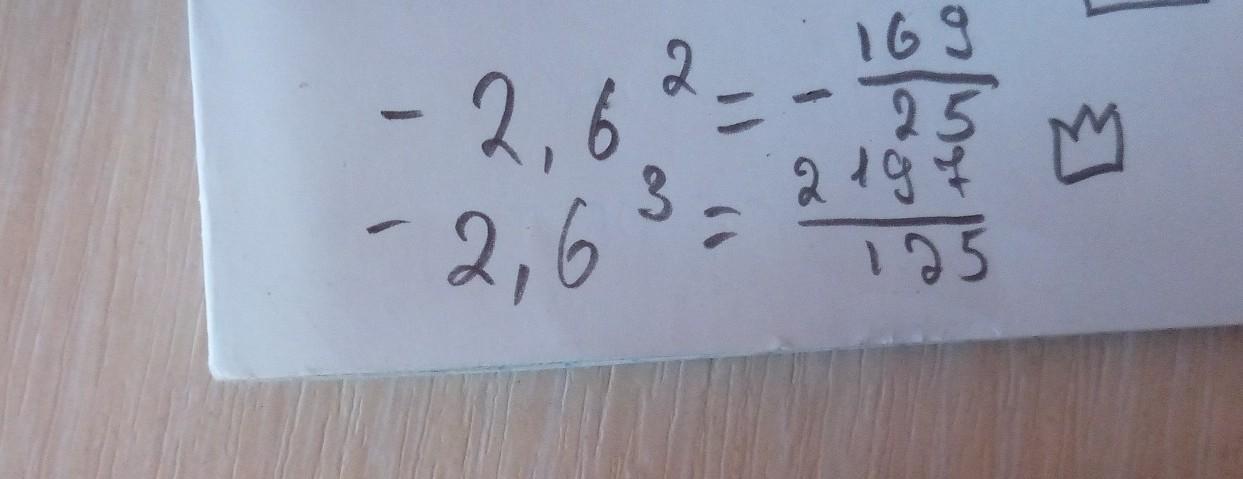 - 2,6² = - 169/25
- 2,6³ = 2197/125